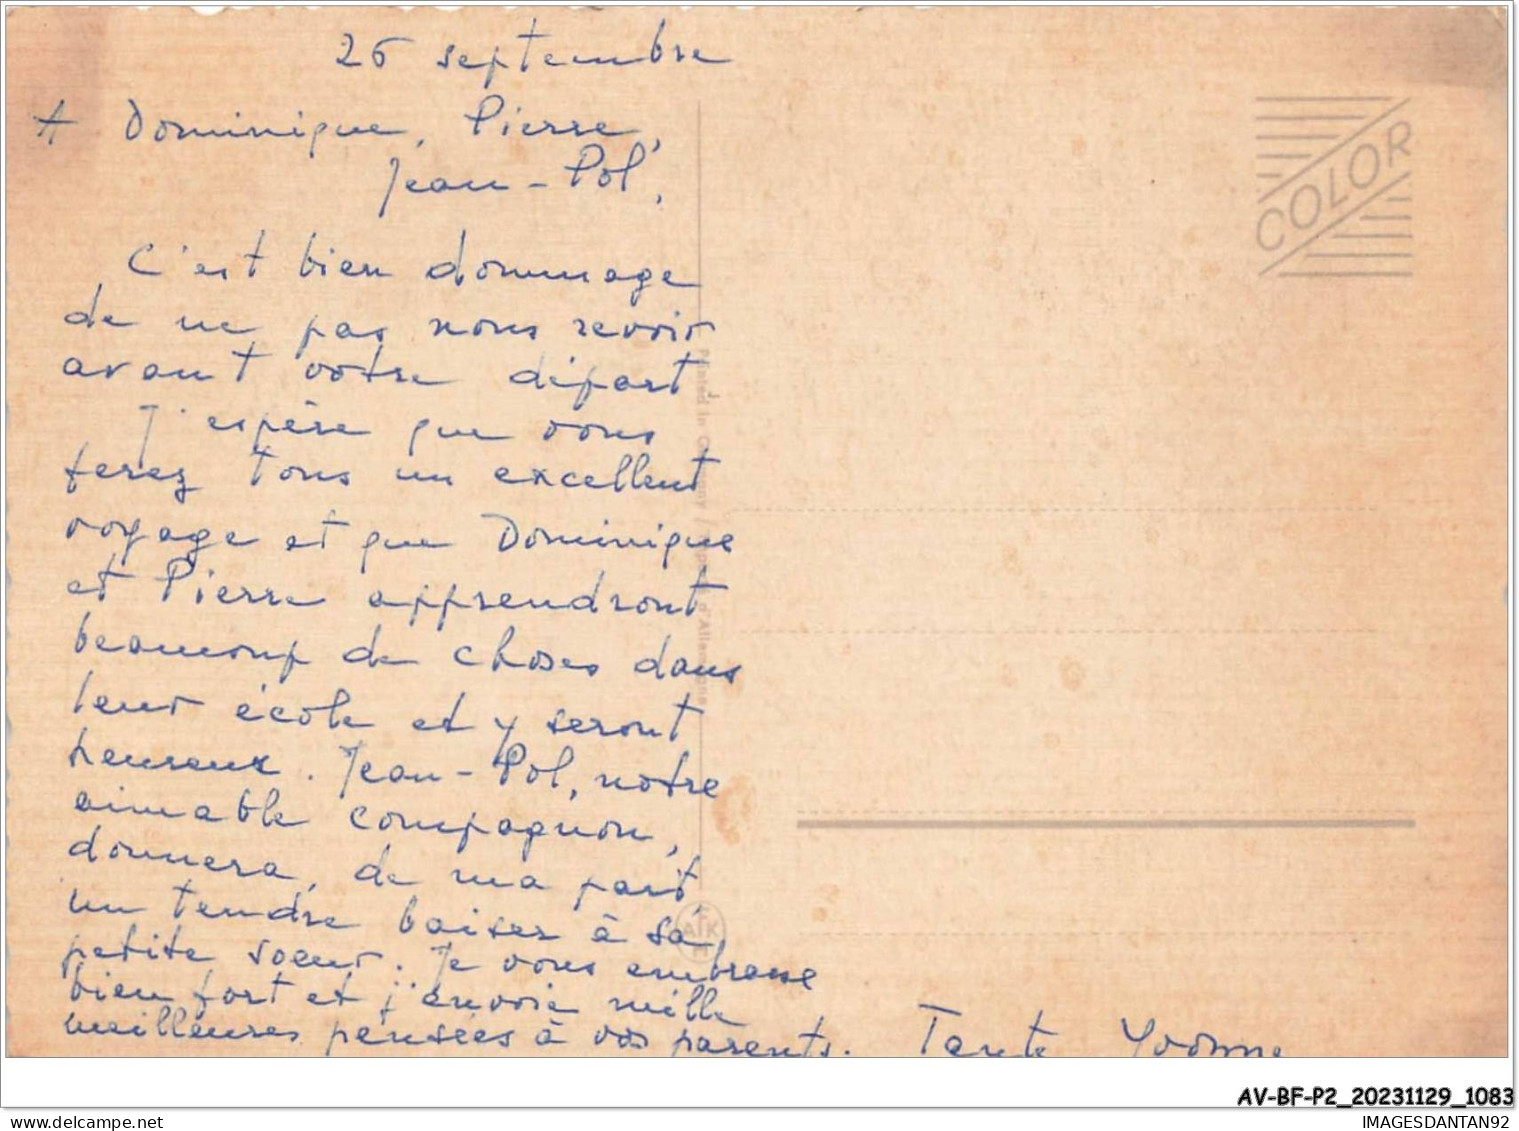 26 septembre
A Dominique, Pierre,
Jean-Pol,
C'est bien dommage
de ne pas nous revoir
avant votre départ
J'espère que vous
ferez tous un excellent
voyage et que Dominique
et Pierre apprendront
beaucoup de choses dans
leur école et y seront
heureux. Jean-Pol, notre
aimable compagnon,
donnera, de ma part,
un tendre baiser à sa
petite soeur. Je vous embrasse
bien fort et j'envoie mille
meilleures pensées à vos parents. Tante Yvonne
COLOR
Printed in Germany
AKE
AV-BF-P2_20231129_1083
IMAGESDANTAN92